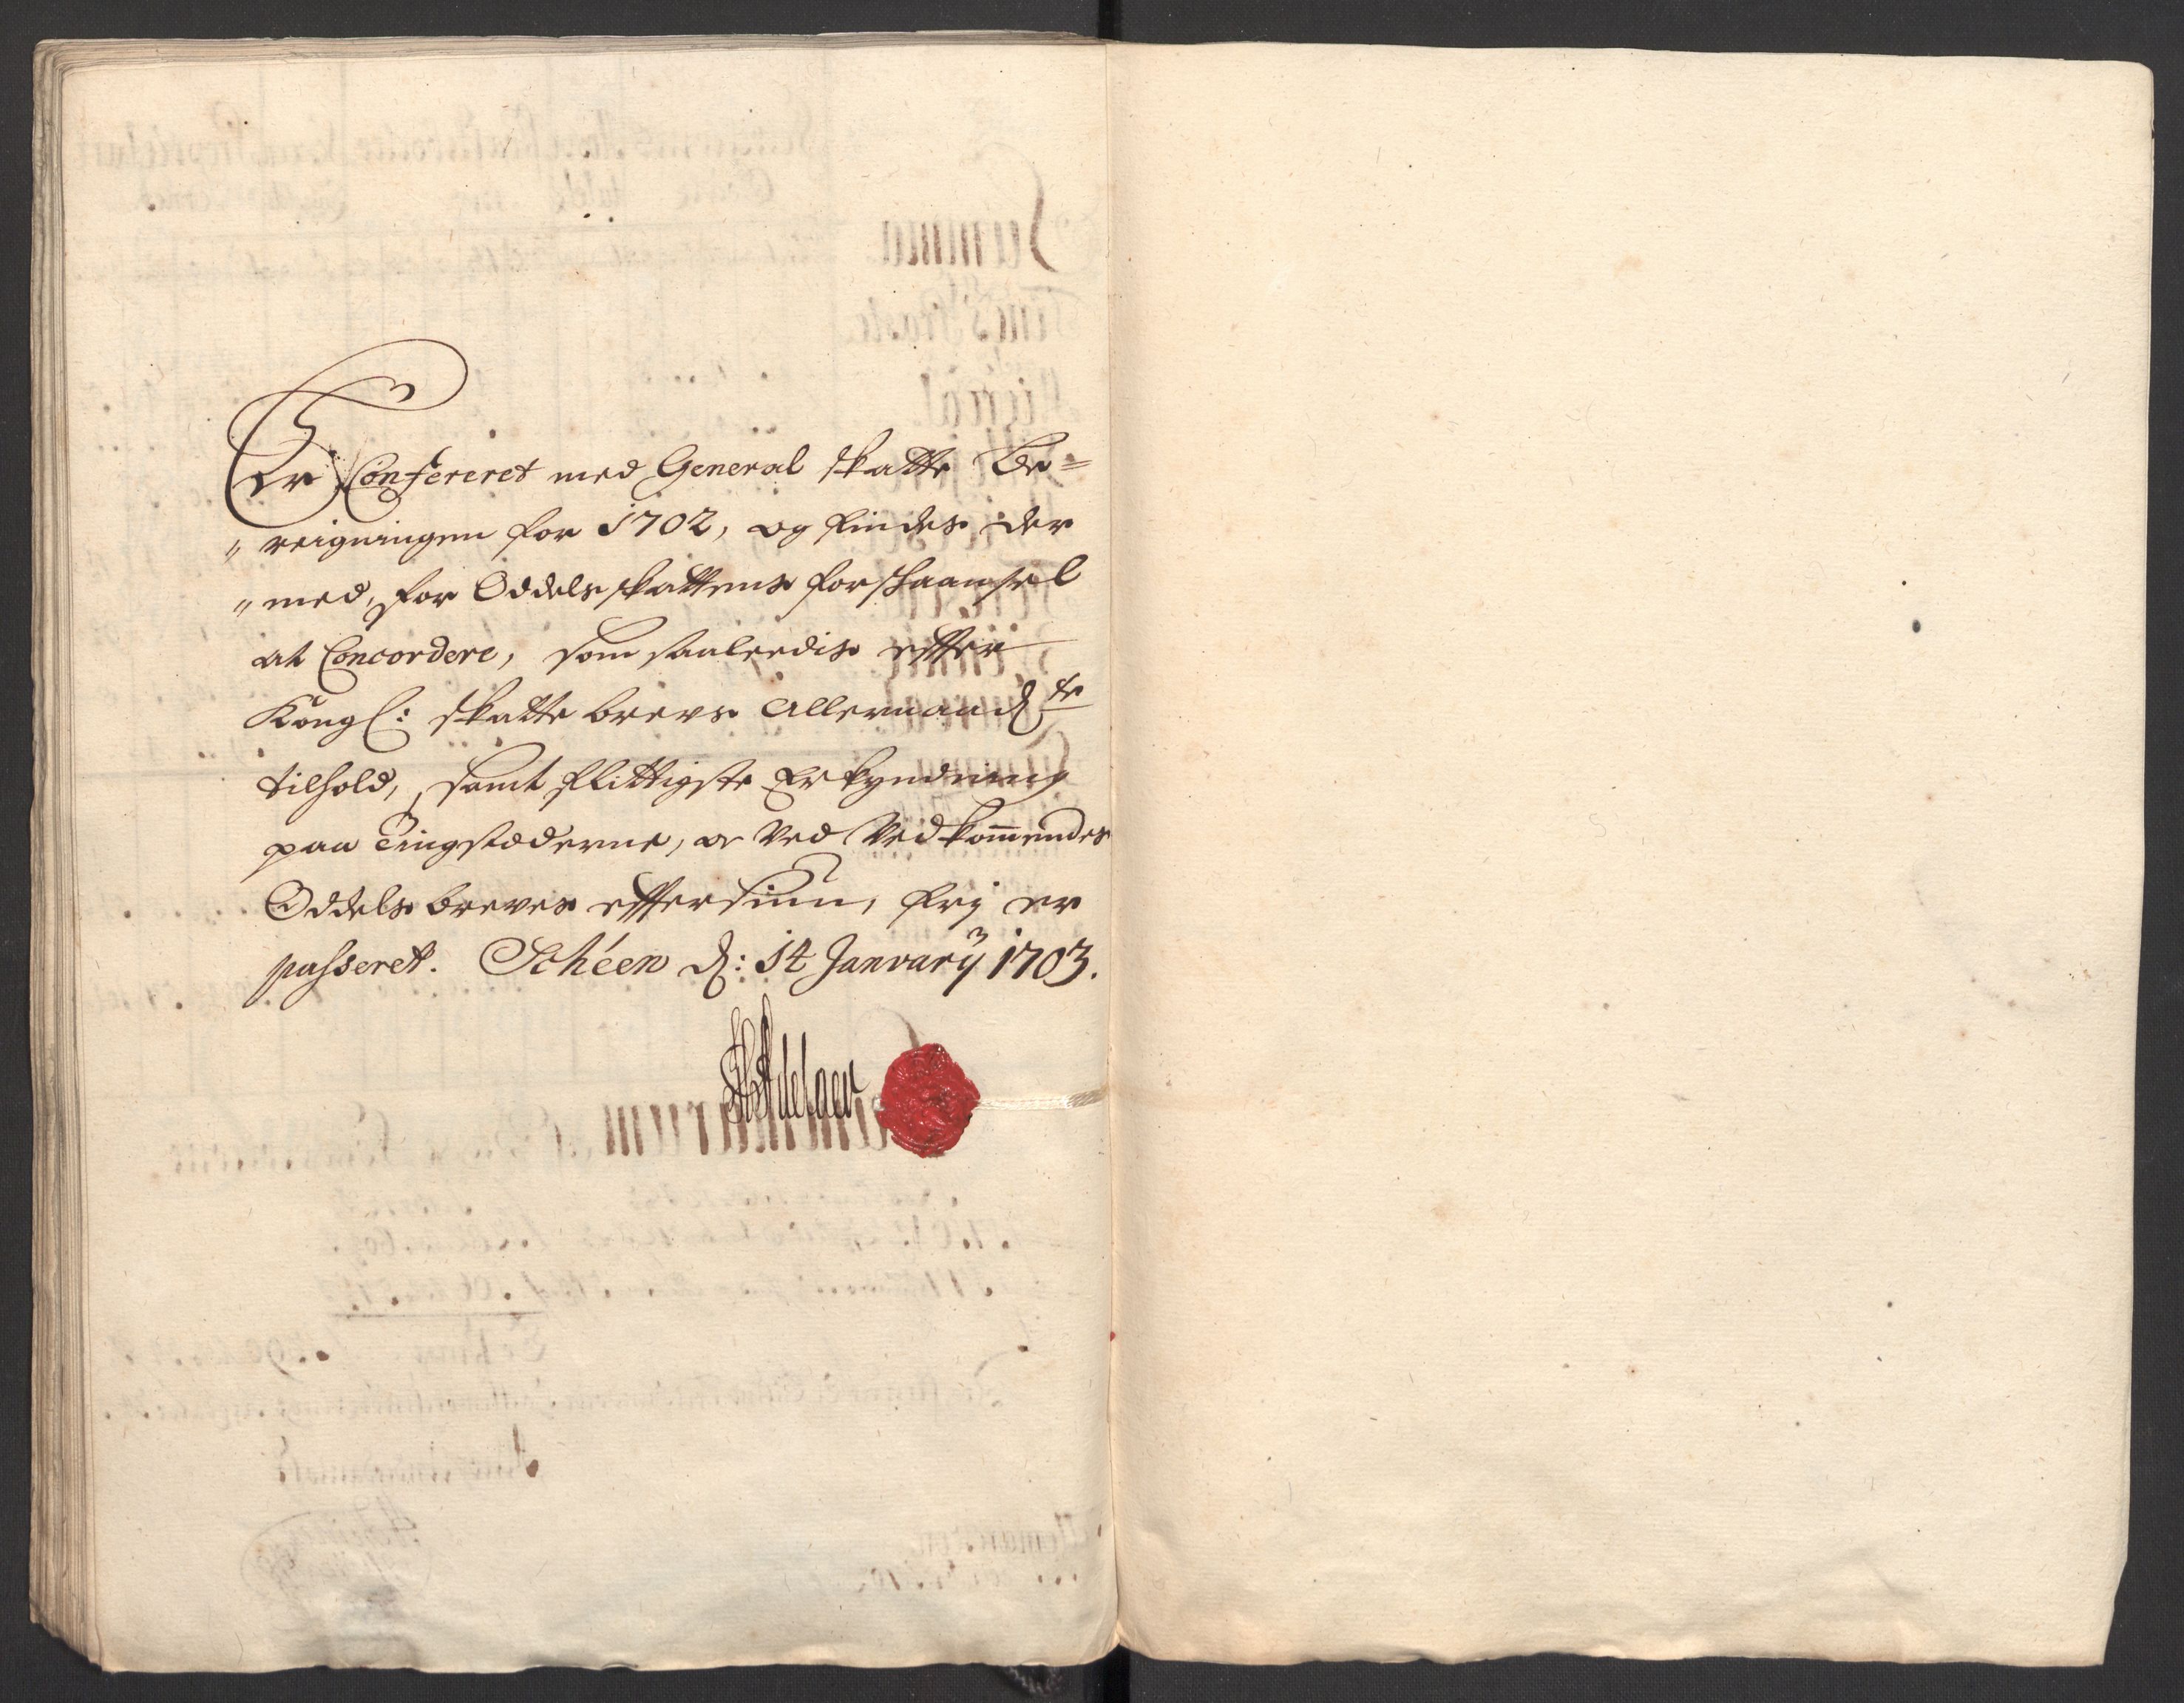 Er Confereret med General skatte Be=
„ reigningen for 1702, og findes der
„ med, for Oddels skattens forschaansel
at Concordere, som saaleedis effter
Kongl: skatte brevs Allernaad ste
tilhold, samt flittigste Erkyndning
paa Tingstæderne, og Ved Vedkommendes
Oddels breves effersiun, frj er
passeret. Schéen d: 14 Januarÿ 1703.
Adelaer